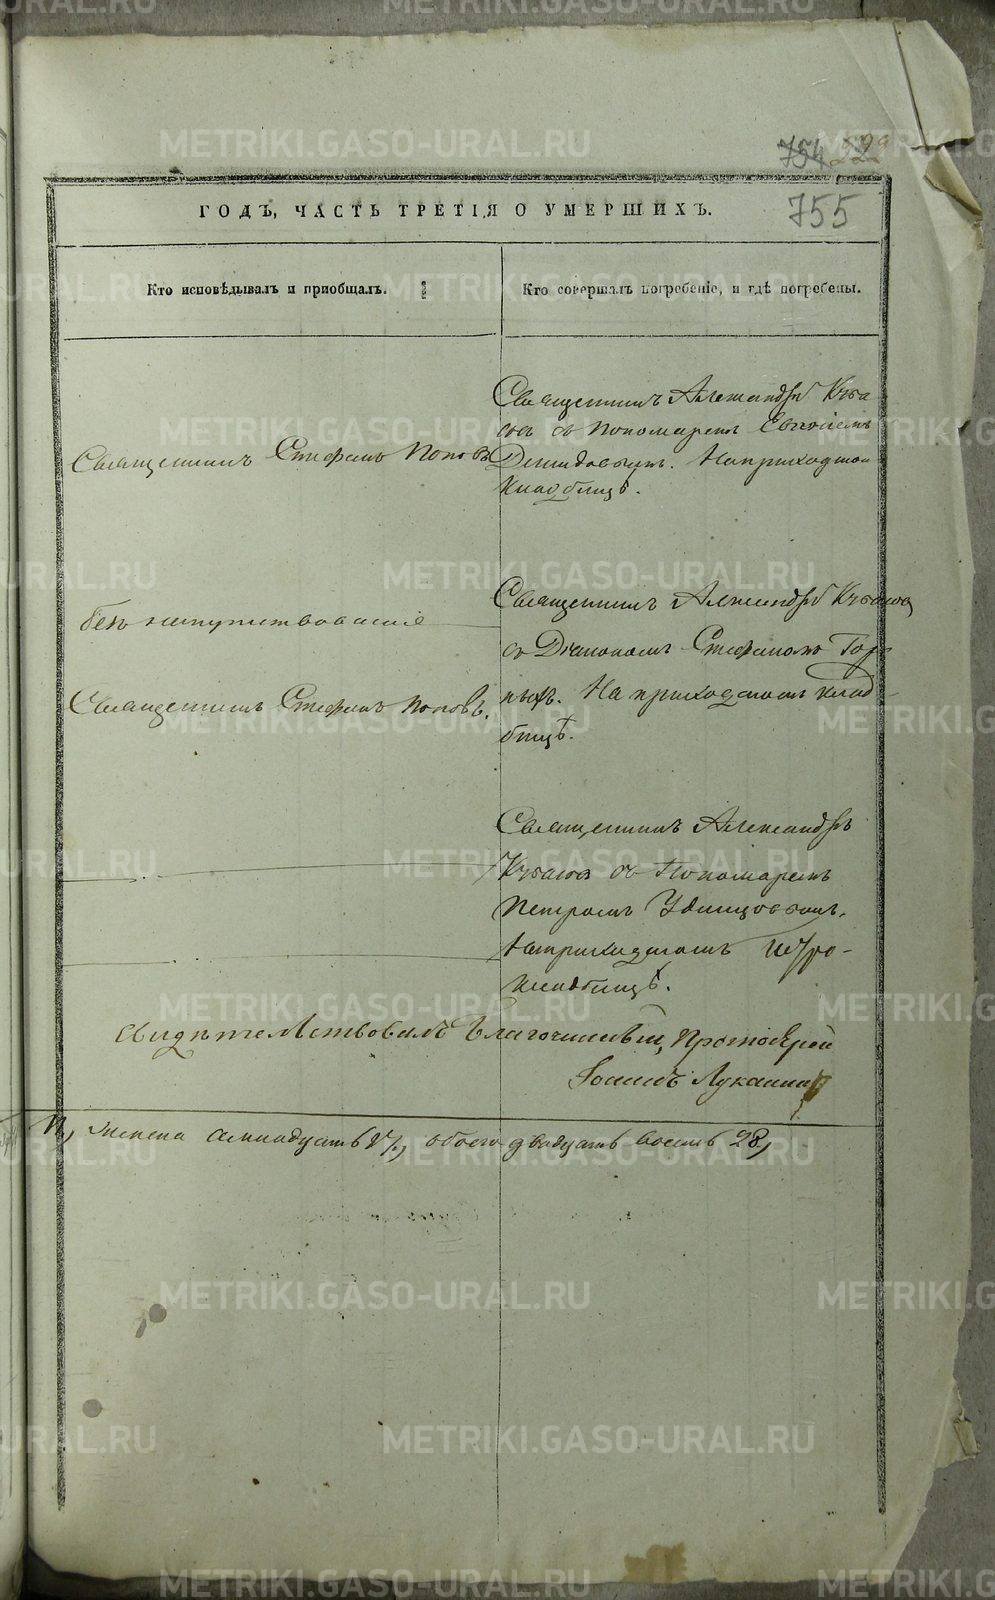 754 529
755
ГОДЪ, ЧАСТЬ ТРЕТІЯ О УМЕРШИХЪ.
Кто исповѣдывалъ и пріобщалъ.
Кто совершалъ погребеніе, и гдѣ погребены.
Священникъ Александръ
съ Пономаремъ Евгеніемъ
Священникъ Стефанъ Поповъ
Демидовымъ. На приходскомъ
кладбищѣ.
Священникъ Александръ
Безъ напутствованія
съ Діакономъ Стефаномъ Гор-
Священникъ Стефанъ Поповъ.
ныхъ. На приходскомъ клад-
бищѣ.
Священникъ Александръ
съ Пономаремъ
Петромъ Удинцовымъ.
На приходскомъ
кладбищѣ.
Свидѣтельствовалъ Благочинный, Протоіерей
Іоаннъ Луканинъ
женска 17, обоего двадцать восемь 28,
METRIKI.GASO-URAL.RU